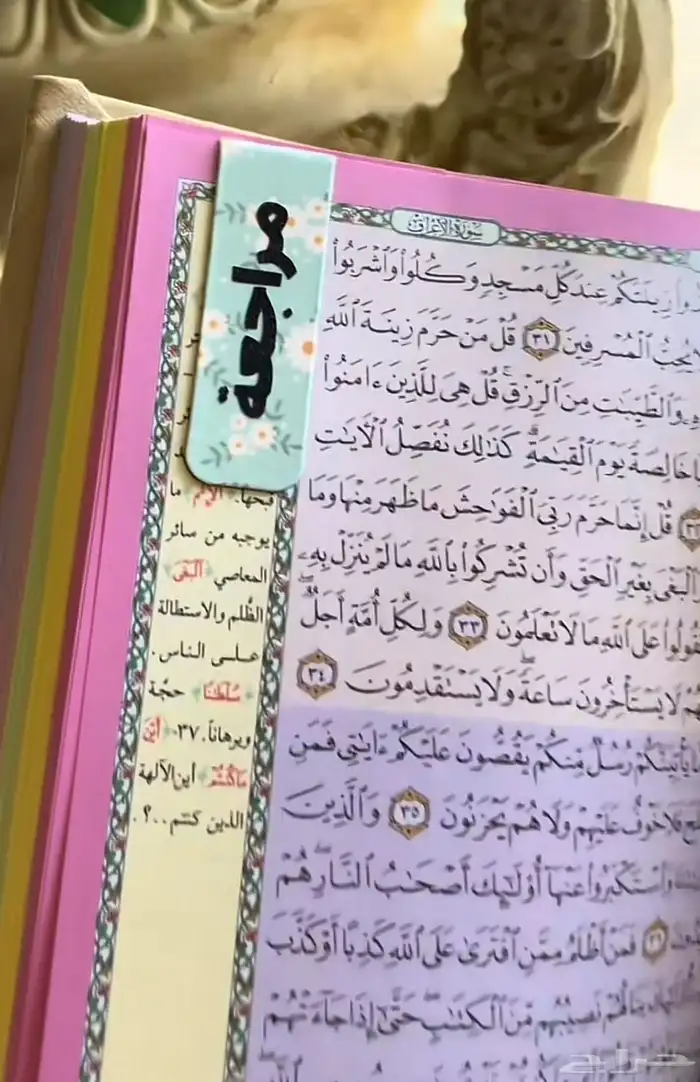 سورة الأعراف
مراجعة
زِينَتَكُمْ عِندَ كُلِّ مَسْجِدٍ وَكُلُوا۟ وَٱشْرَبُوا۟
يُحِبُّ ٱلْمُسْرِفِينَ ٣١ قُلْ مَنْ حَرَّمَ زِينَةَ ٱللَّهِ
وَٱلطَّيِّبَـٰتِ مِنَ ٱلرِّزْقِ ۚ قُلْ هِىَ لِلَّذِينَ ءَامَنُوا۟
خَالِصَةً يَوْمَ ٱلْقِيَـٰمَةِ ۗ كَذَٰلِكَ نُفَصِّلُ ٱلْـَٔايَـٰتِ
قُلْ إِنَّمَا حَرَّمَ رَبِّىَ ٱلْفَوَٰحِشَ مَا ظَهَرَ مِنْهَا وَمَا
ٱلْبَغْىَ بِغَيْرِ ٱلْحَقِّ وَأَن تُشْرِكُوا۟ بِٱللَّهِ مَا لَمْ يُنَزِّلْ بِهِۦ
تَقُولُوا۟ عَلَى ٱللَّهِ مَا لَا تَعْلَمُونَ ٣٣ وَلِكُلِّ أُمَّةٍ أَجَلٌ ۖ
لَا يَسْتَأْخِرُونَ سَاعَةً ۖ وَلَا يَسْتَقْدِمُونَ ٣٤
يَأْتِيَنَّكُمْ رُسُلٌ مِّنكُمْ يَقُصُّونَ عَلَيْكُمْ ءَايَـٰتِى فَمَنِ
فَلَا خَوْفٌ عَلَيْهِمْ وَلَا هُمْ يَحْزَنُونَ ٣٥ وَٱلَّذِينَ
وَٱسْتَكْبَرُوا۟ عَنْهَآ أُو۟لَـٰٓئِكَ أَصْحَـٰبُ ٱلنَّارِ ۖ هُمْ
٣٦ فَمَنْ أَظْلَمُ مِمَّنِ ٱفْتَرَىٰ عَلَى ٱللَّهِ كَذِبًا أَوْ كَذَّبَ
يَنَالُهُمْ نَصِيبُهُم مِّنَ ٱلْكِتَـٰبِ ۖ حَتَّىٰٓ إِذَا جَآءَتْهُمْ
قبحها. الإثم ما
يوجبه من سائر
المعاصي ﴿البغى﴾
الظُّلم والاستطالة
على الناس.
﴿سلطنا﴾ حجّة
وبرهاناً. ٣٧- ﴿أين
ما كنتم﴾ أين الآلهة
الذين كنتم..؟.
حراج